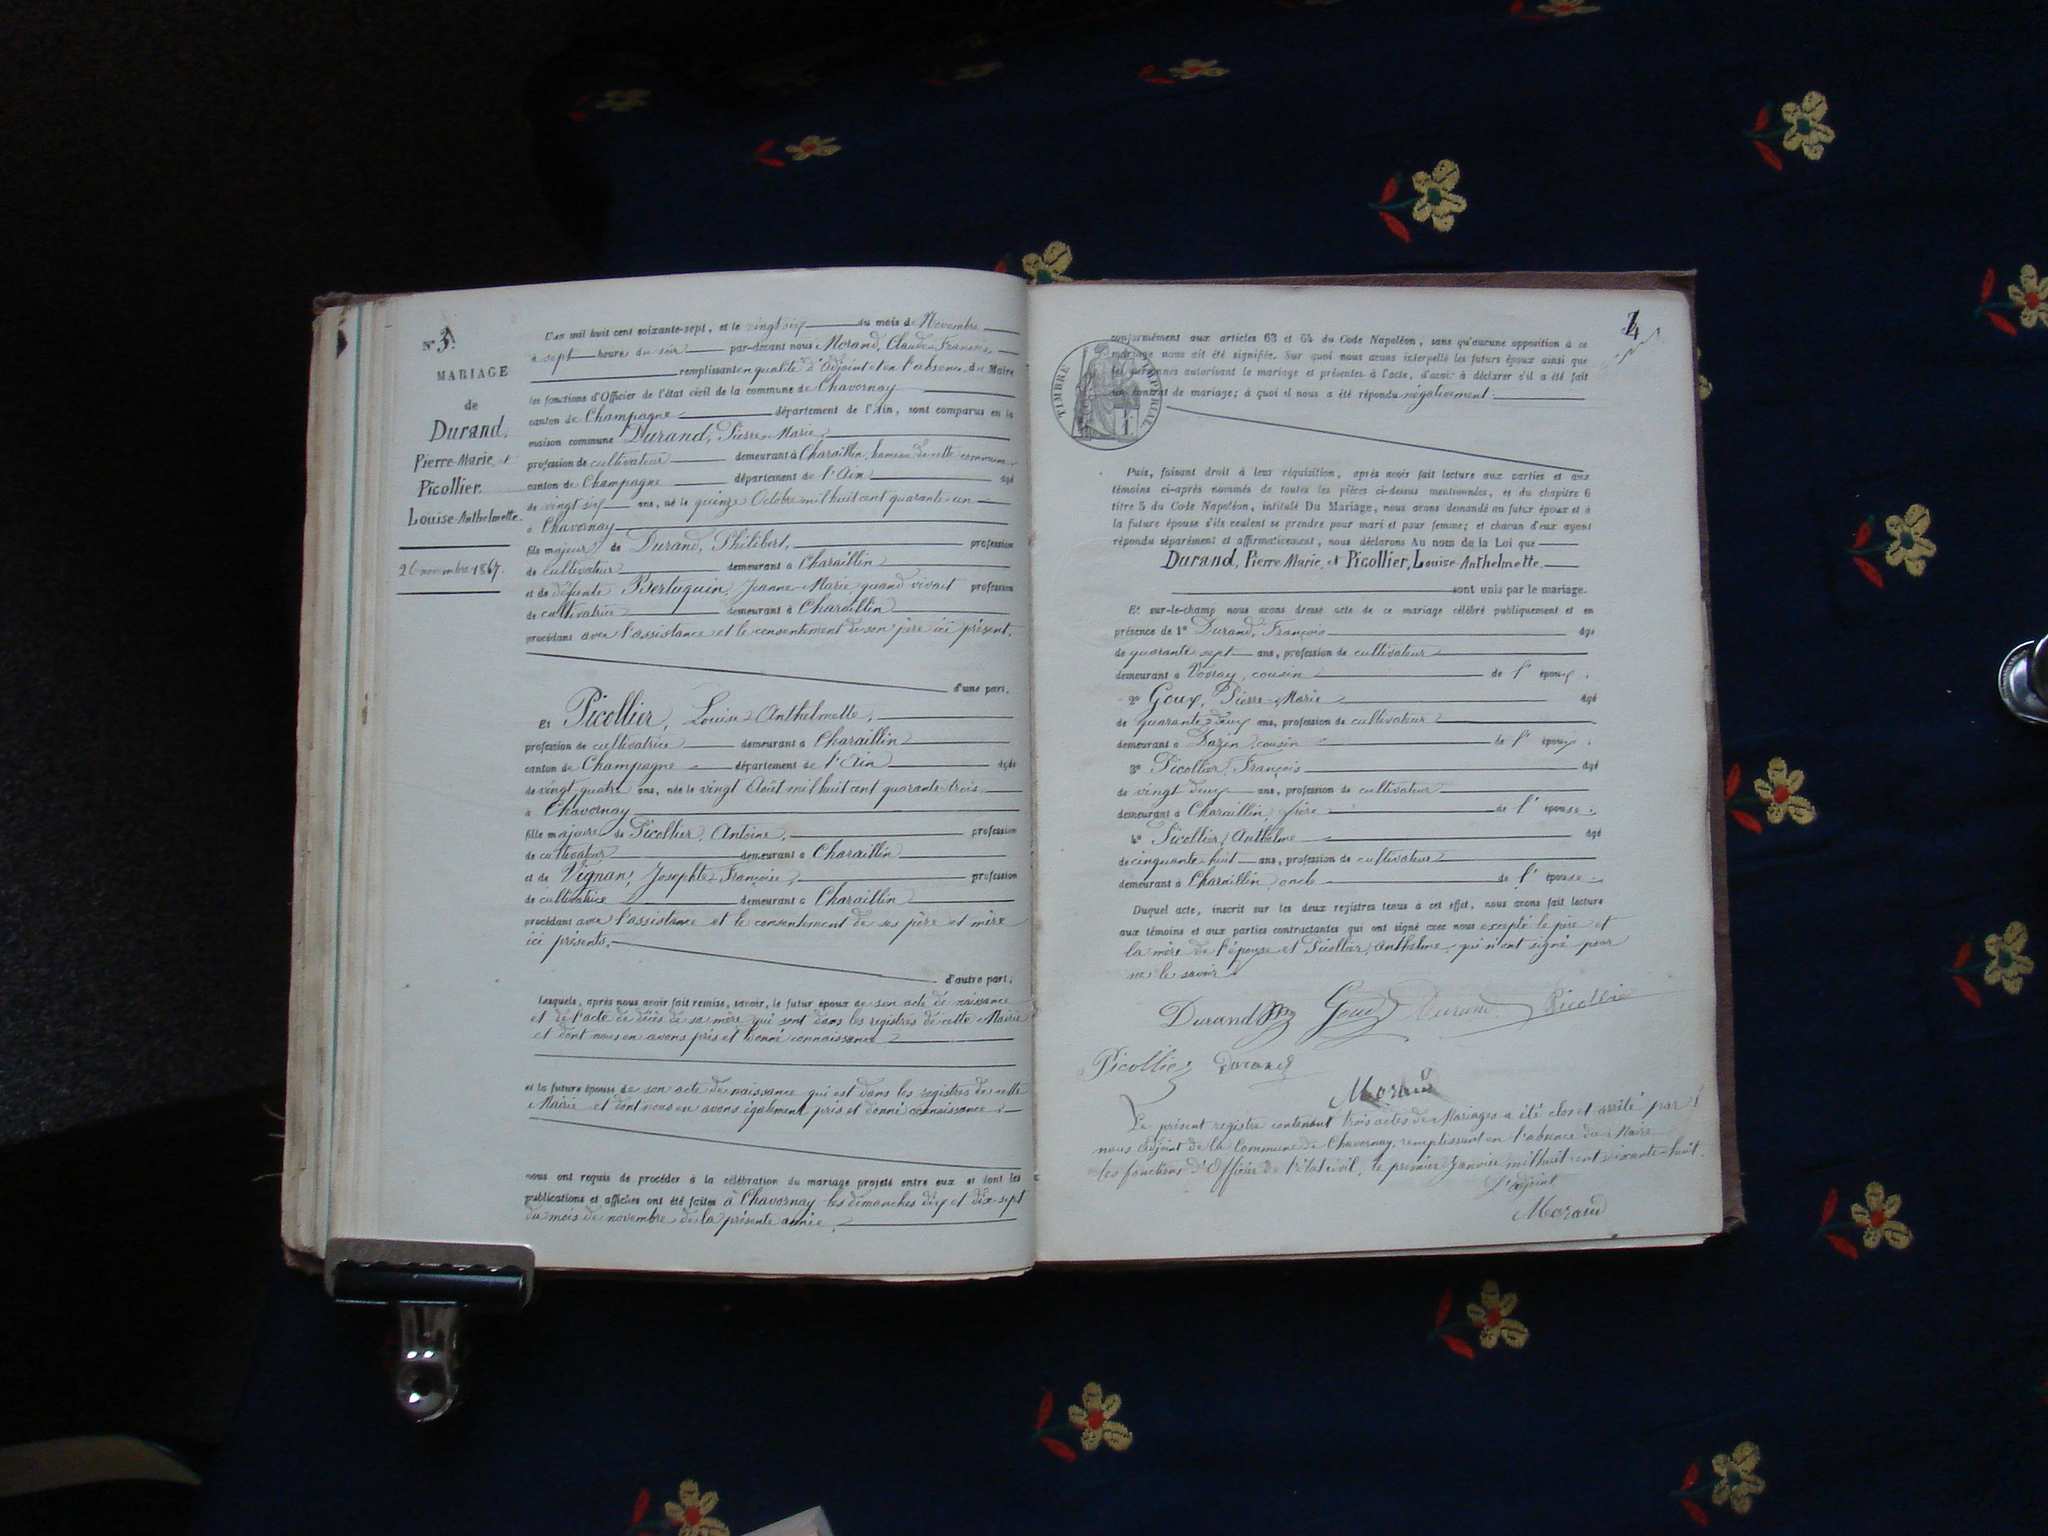 N° 3.
MARIAGE
de
Durand,
Pierre-Marie et
Picollier,
Louise-Anthelmette.
26 novembre 1867.
L'an mil huit cent soixante-sept, et le vingt six du mois de Novembre
à sept heure du soir par-devant nous Morand, Claude-François
remplissant en qualité d'Adjoint et en l'absence du Maire
les fonctions d'Officier de l'état civil de la commune de Chavornay
canton de Champagne département de l'Ain, sont comparus en la
maison commune Durand, Pierre-Marie,
profession de cultivateur demeurant à Charaillin, hameau de cette commune
canton de Champagne département de l'Ain âgé
de vingt six ans, né le quinze Octobre mil huit cent quarante un
à Chavornay
fils majeur de Durand, Philibert, profession
de cultivateur demeurant à Charaillin
et de défunte Bertuquin, Jeanne-Marie quand vivait profession
de cultivatrice demeurant à Charaillin
procédant avec l'assistance et le consentement de son père ici présent.
d'une part.
Et Picollier, Louise Anthelmette,
profession de cultivatrice demeurant à Charaillin
canton de Champagne département de l'Ain âgée
de vingt-quatre ans, née le vingt Août mil huit cent quarante-trois
à Chavornay
fille majeure de Picollier, Antoine, profession
de cultivateur demeurant à Charaillin
et de Josephte Françoise, profession
de cultivatrice demeurant à Charaillin
procédant avec l'assistance et le consentement de ses père et mère
ici présents.
d'autre part.
Lesquels, après nous avoir fait remise, savoir, le futur époux de son acte de naissance
et de l'acte de décès de sa mère qui sont dans les registres de cette Mairie
et dont nous en avons pris et donné connaissance
et la future épouse de son acte de naissance qui est dans les registres de cette
Mairie et dont nous en avons également pris et donné connaissance
nous ont requis de procéder à la célébration du mariage projeté entre eux et dont les
publications et affiches ont été faites à Chavornay les dimanches dix et dix-sept
du mois de novembre de la présente année.
4
conformément aux articles 63 et 64 du Code Napoléon, sans qu'aucune opposition à ce
mariage nous ait été signifiée. Sur quoi nous avons interpellé les futurs époux ainsi que
les personnes autorisant le mariage et présentes à l'acte, d'avoir à déclarer s'il a été fait
un contrat de mariage; à quoi il nous a été répondu négativement.
TIMBRE IMPÉRIAL
Puis, faisant droit à leur réquisition, après avoir fait lecture aux parties et aux
témoins ci-après nommés de toutes les pièces ci-dessus mentionnées, et du chapitre 6
titre 5 du Code Napoléon, intitulé Du Mariage, nous avons demandé au futur époux et à
la future épouse s'ils veulent se prendre pour mari et pour femme; et chacun d'eux ayant
répondu séparément et affirmativement, nous déclarons Au nom de la Loi que
Durand, Pierre-Marie, et Picollier, Louise-Anthelmette.
sont unis par le mariage.
Et sur-le-champ nous avons dressé acte de ce mariage célébré publiquement et en
présence de 1° Durand, François âgé
de quarante sept ans, profession de cultivateur
demeurant à Vovray, cousin de l' époux.
2° Goux, Pierre-Marie âgé
de quarante deux ans, profession de cultivateur
demeurant à Dazin cousin de l' époux.
3° Picollier, François âgé
de vingt deux ans, profession de cultivateur
demeurant à Charaillin, frère de l' épouse.
4° Picollier, Anthelme âgé
de cinquante-huit ans, profession de cultivateur
demeurant à Charaillin, oncle de l' épouse.
Duquel acte, inscrit sur les deux registres tenus à cet effet, nous avons fait lecture
aux témoins et aux parties contractantes qui ont signé avec nous excepté le père et
la mère de l'épouse et Picollier, Anthelme, qui n'ont signé pour
ne le savoir
Durand Goux Durand Picollier
Picollier Durand
Morand
Le présent registre contenant trois actes de Mariages a été clos et arrêté par
nous Adjoint de la Commune de Chavornay, remplissant en l'absence du Maire
les fonctions d'Officier de l'état civil, le premier Janvier mil huit cent soixante-huit.
L'adjoint
Morand